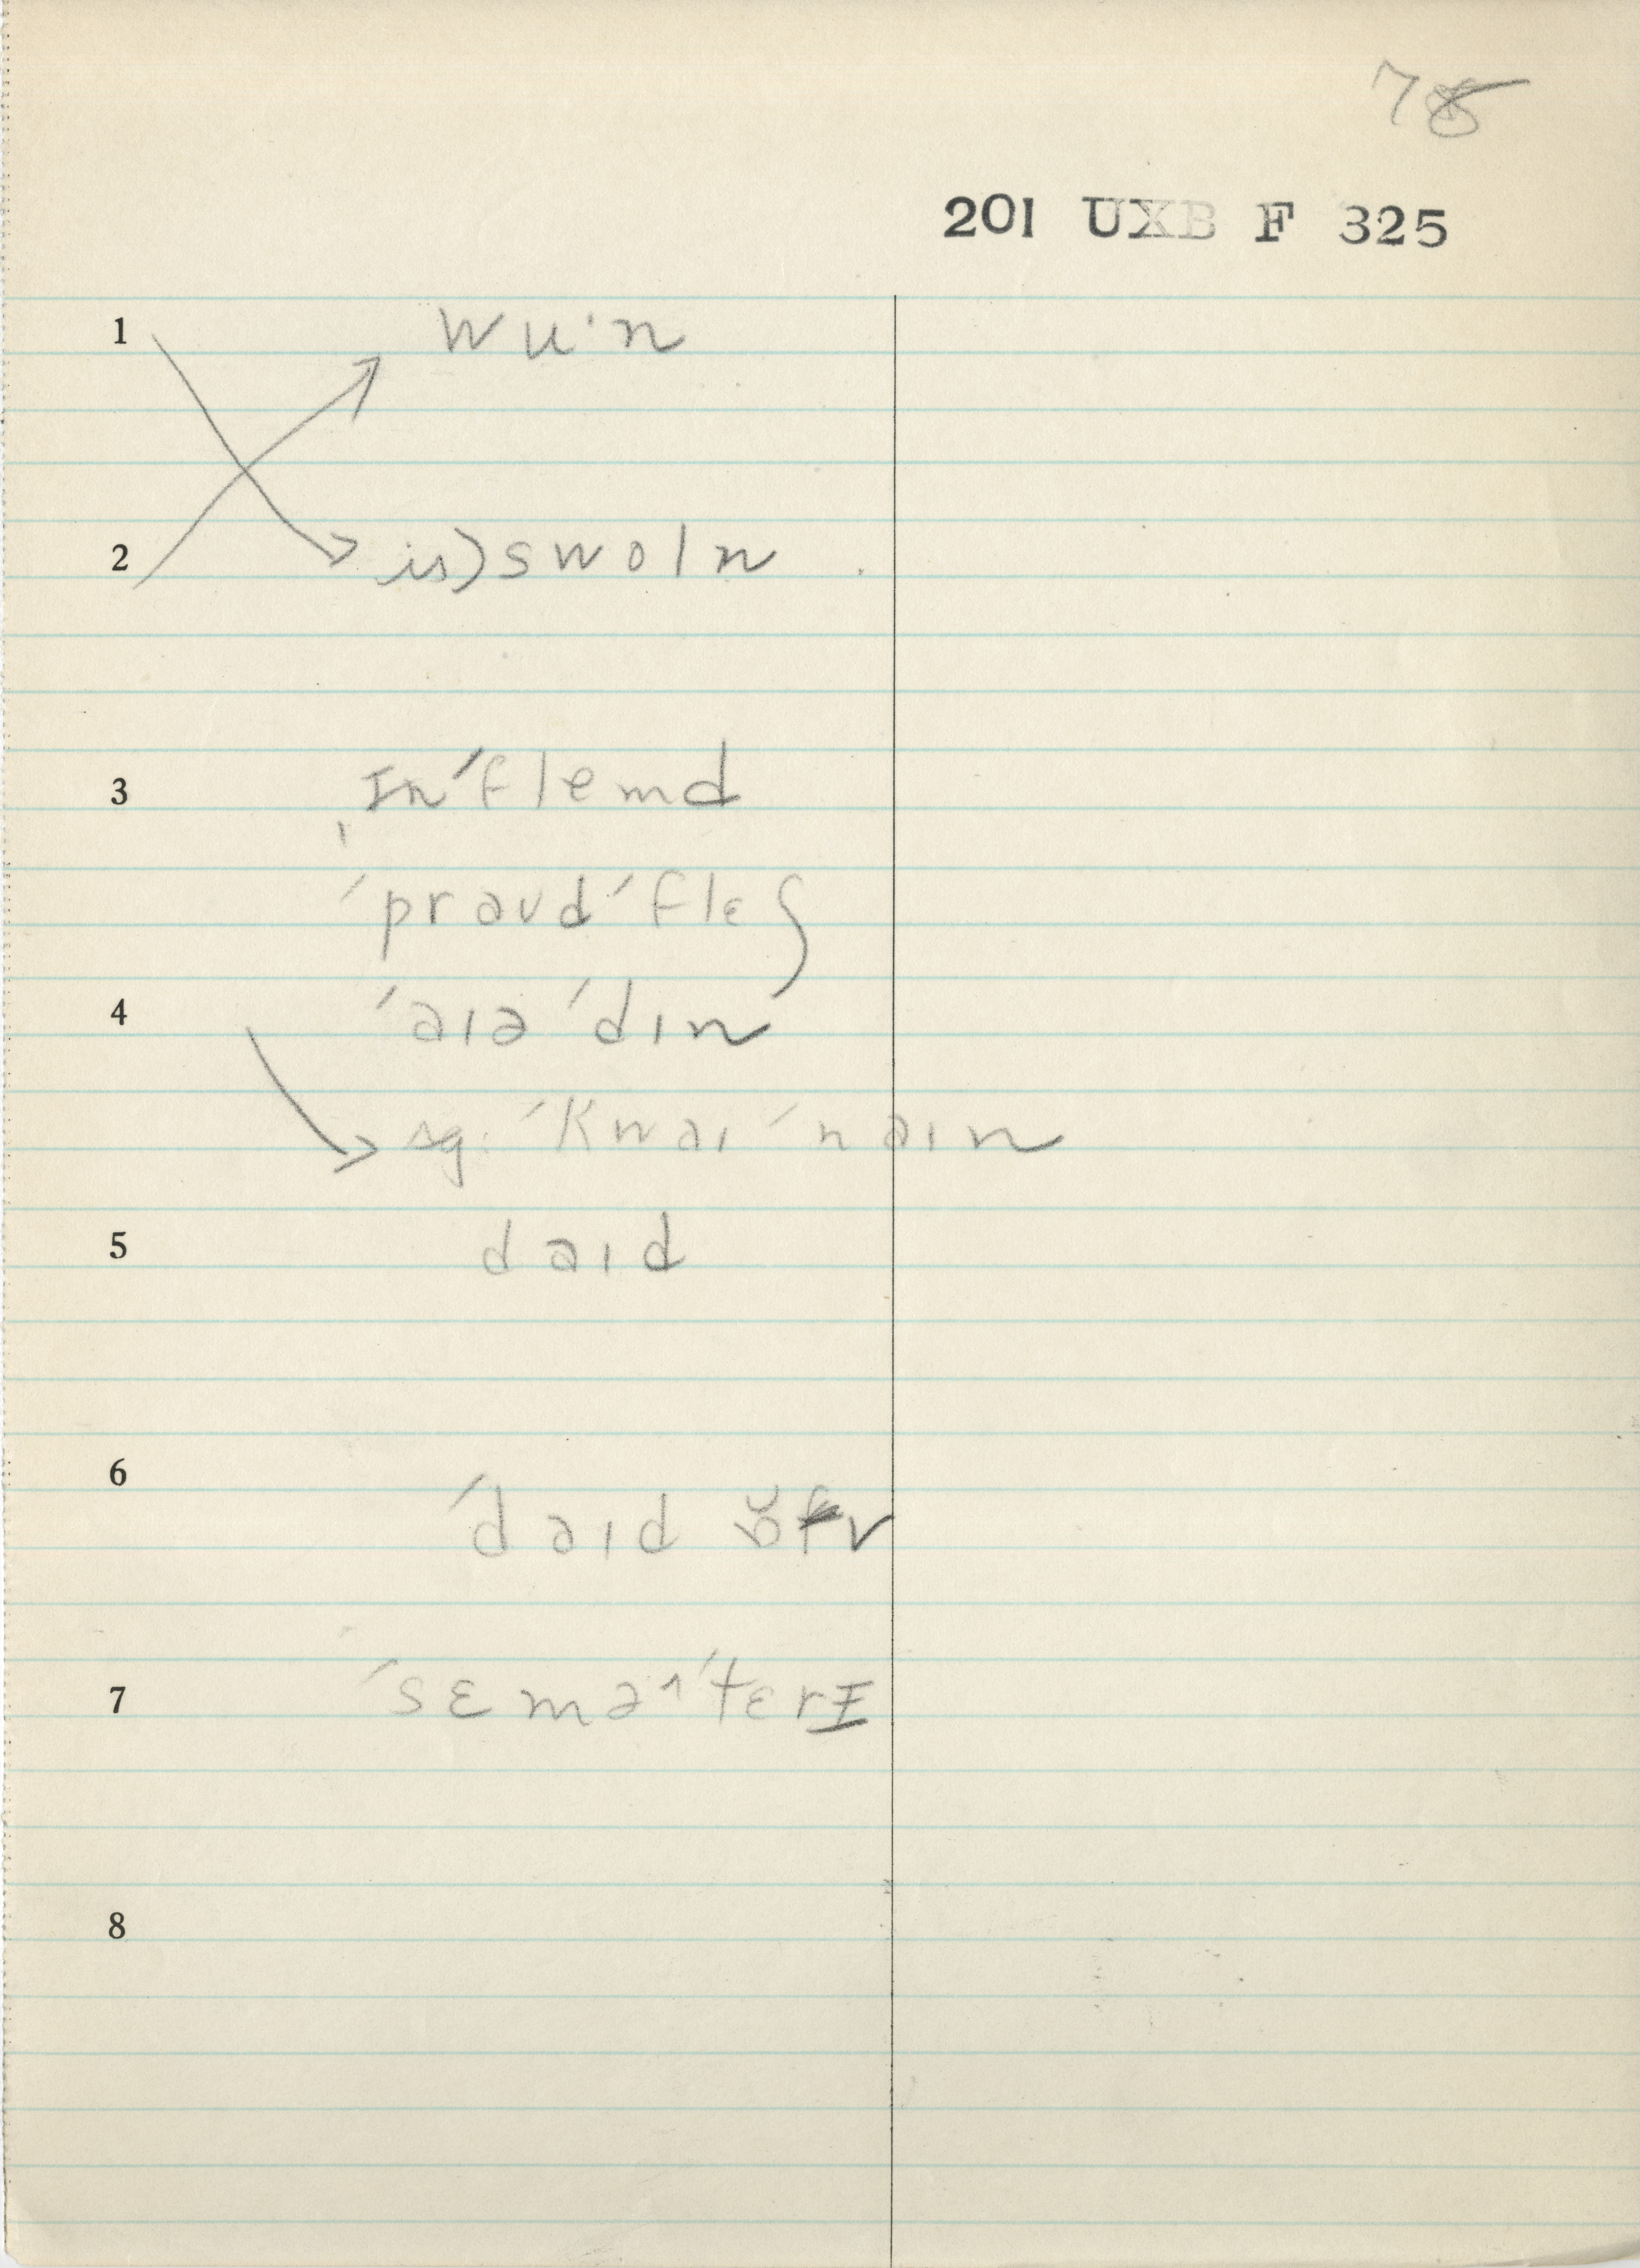 78
201 UXB F 325
1 wu·n
2 is) swoln
3 ɪn ˈflemd
ˈpraʊd ˈflɛʃ
4 ˈaɪə ˈdɪn
sg: ˈkwaɪ ˈnaɪn
5 daɪd
6 ˈdaɪd
7 ˈsɛməˌˈtɛrɪ
8